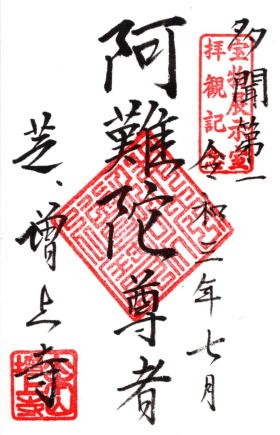 多聞第一
宝物展示室
拝観記念
令和三年七月
阿難陀尊者
芝、増上寺